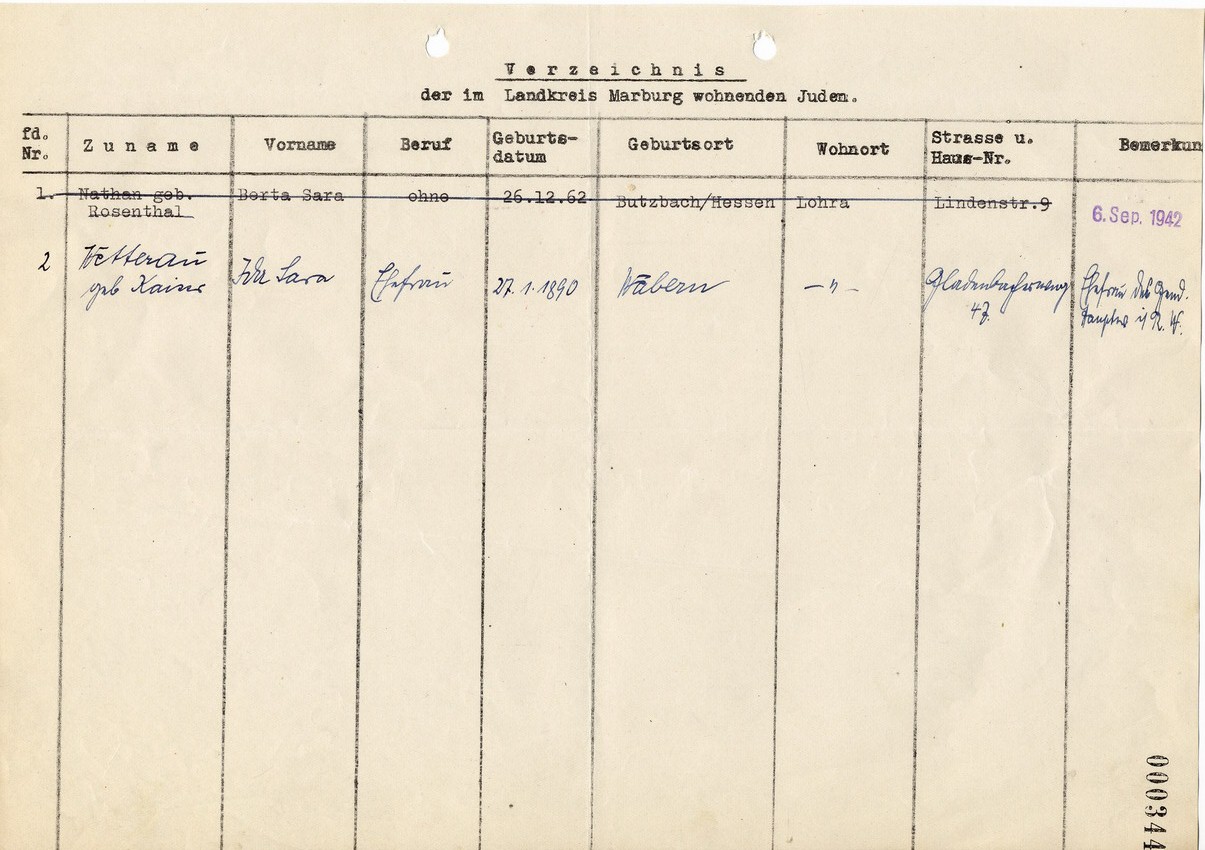 Verzeichnis
der im Landkreis Marburg wohnenden Juden.
fd. Nr. Zuname Vorname Beruf Geburts-datum Geburtsort Wohnort Strasse u. Haus-Nr. Bemerkun
1. Nathan geb. Berta Sara ohne 26.12.62 Butzbach/Hessen Lohra Lindenstr.9
Rosenthal
6. Sep. 1942
2 Wetterau Ida Sara Ehefrau 27.1.1890 Wabern -"- Gladenbacherweg Ehefrau des Gend.
geb
000344